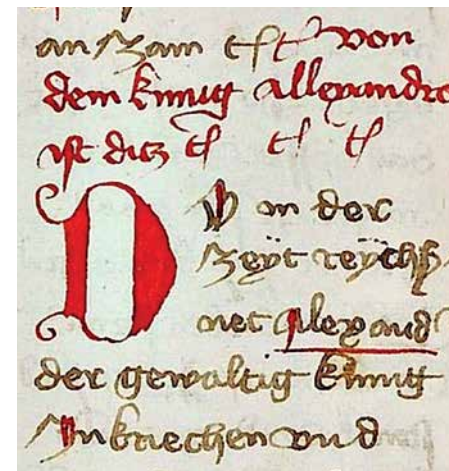 an zam etc etc von
dem kunig allexandro
ist ditz etc etc etc
DO in der
Zeyt reychß
net Alexand
der gewaltig kunig
Inkriechen vnd